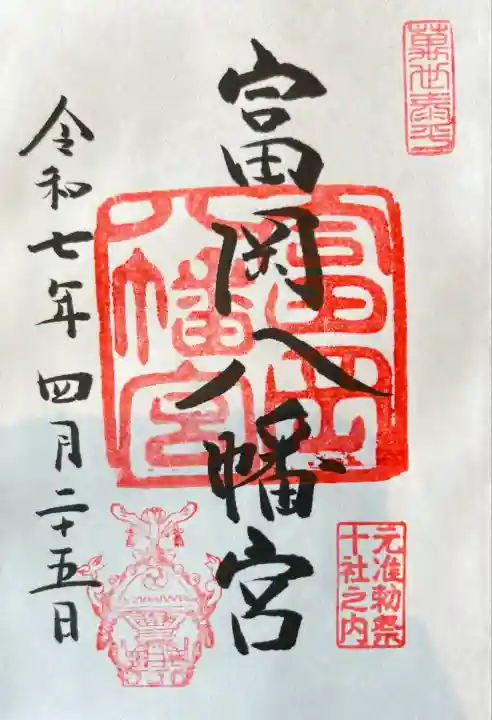 萬世泰平
富岡八幡宮
富岡
八幡宮
元准勅祭
十社之内
令和七年四月二十五日